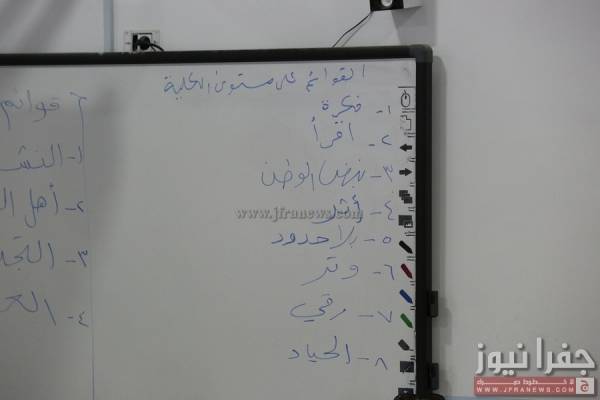 القوائم على مستوى الكلية
١- فكرة
٢- اقرأ
٣- نبض الوطن
٤- أثر
٥- بلا حدود
٦- وتر
٧- رقي
٨- الحياد
قوائم
١- النشـ
٢- أهل الـ
٣- التجد
٤- العـ
www.jfranews.com
جفرا نيوز
لا خطوط حمراء
WWW.JFRANEWS.COM